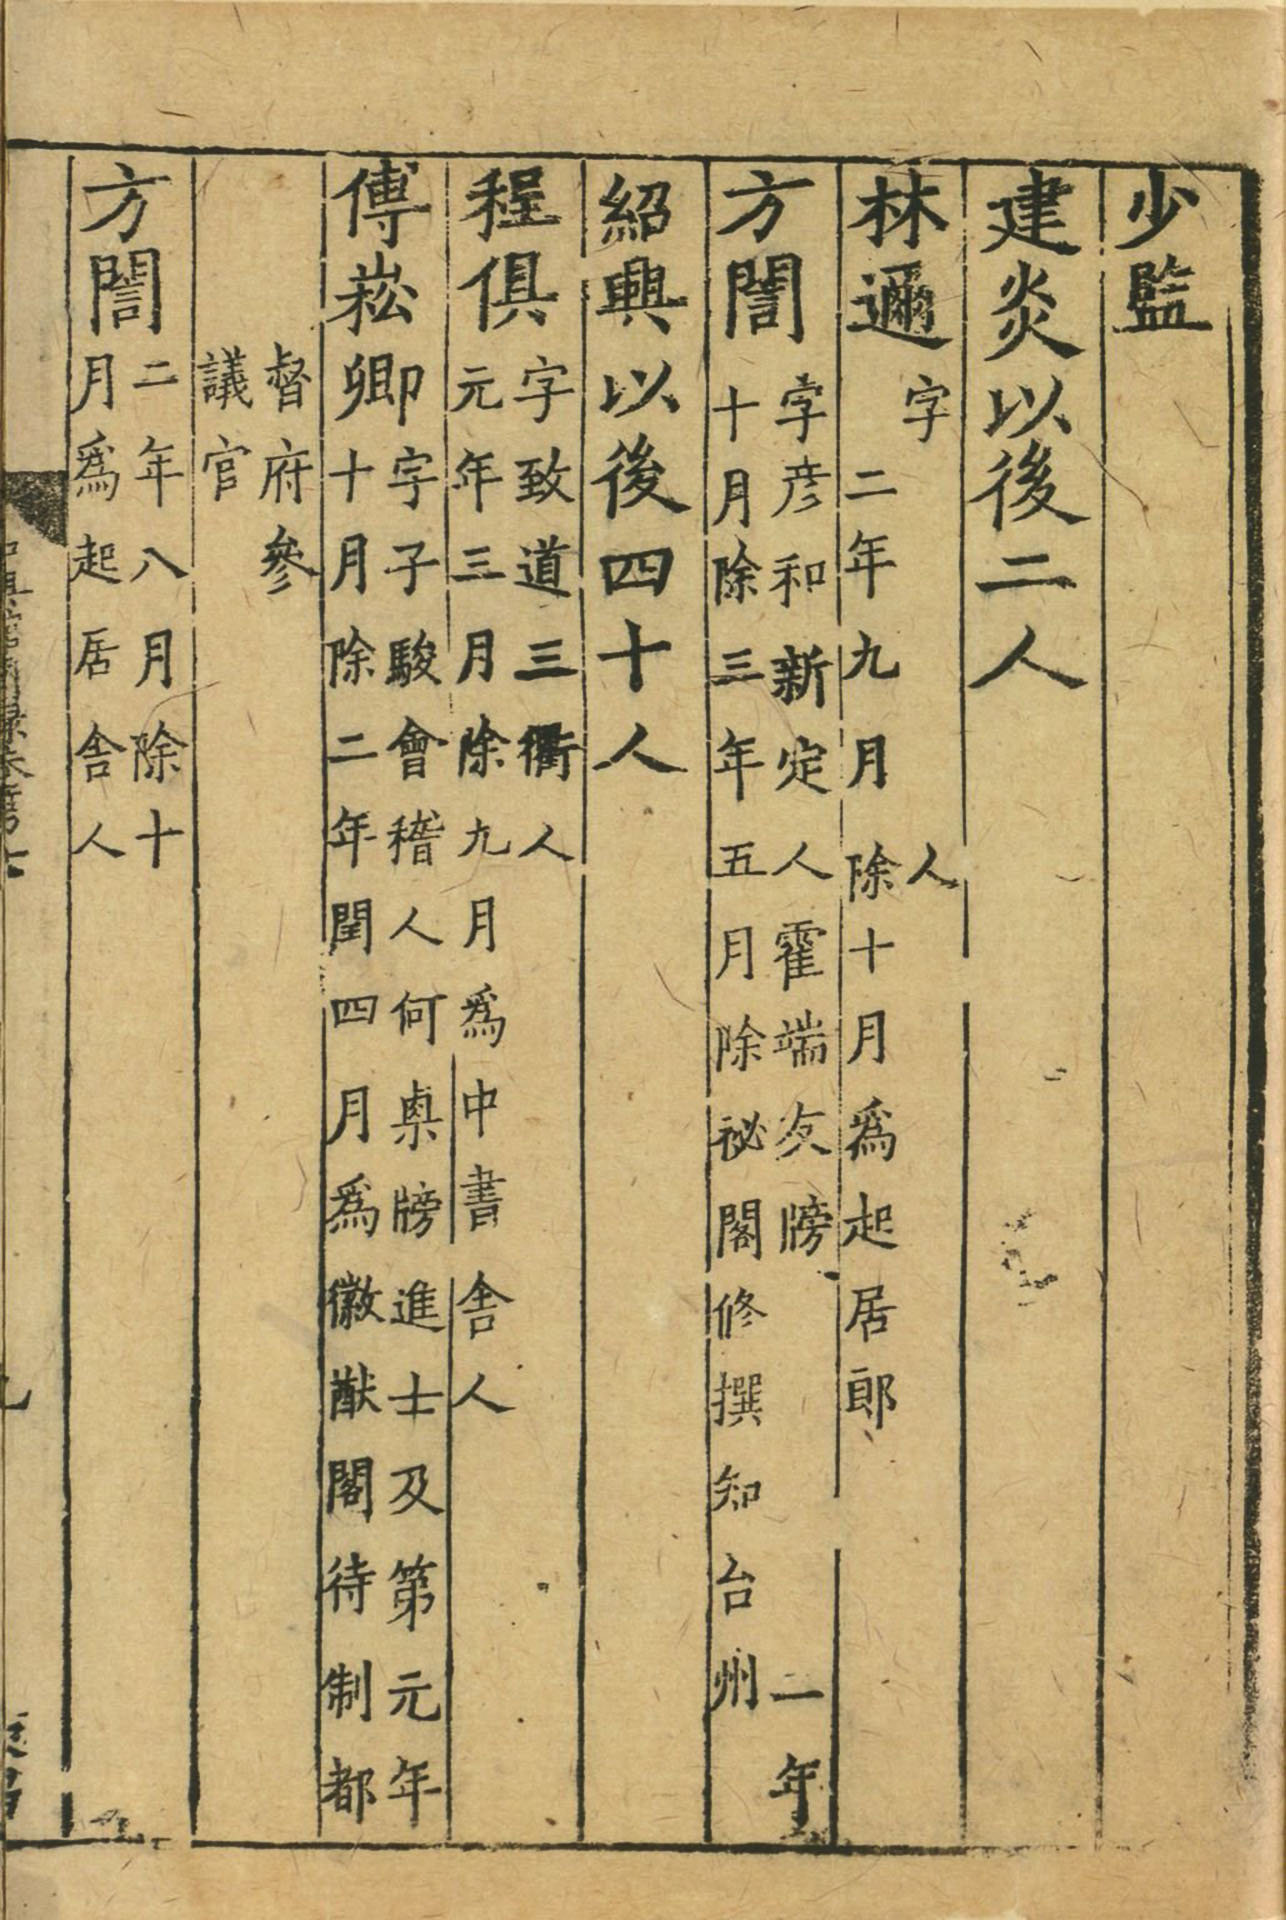 少監
建炎以後二人
林遹字　人
二年九月除十月爲起居郎
方誾字彦和新定人霍端友牓　二年
十月除三年五月除祕閣修撰知台州
紹興以後四十人
程俱字致道三衢人
元年三月除九月爲中書舎人
傅崧卿字子駿會稽人何㮚牓進士及第元年
十月除二年閏四月爲徽猷閣待制都
督府參
議官
方誾二年八月除十
月爲起居舎人